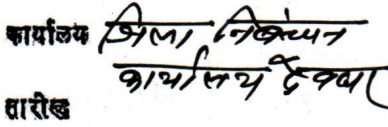 कार्यालय जिला निबंधन
कार्यालय देवघर
तारीख